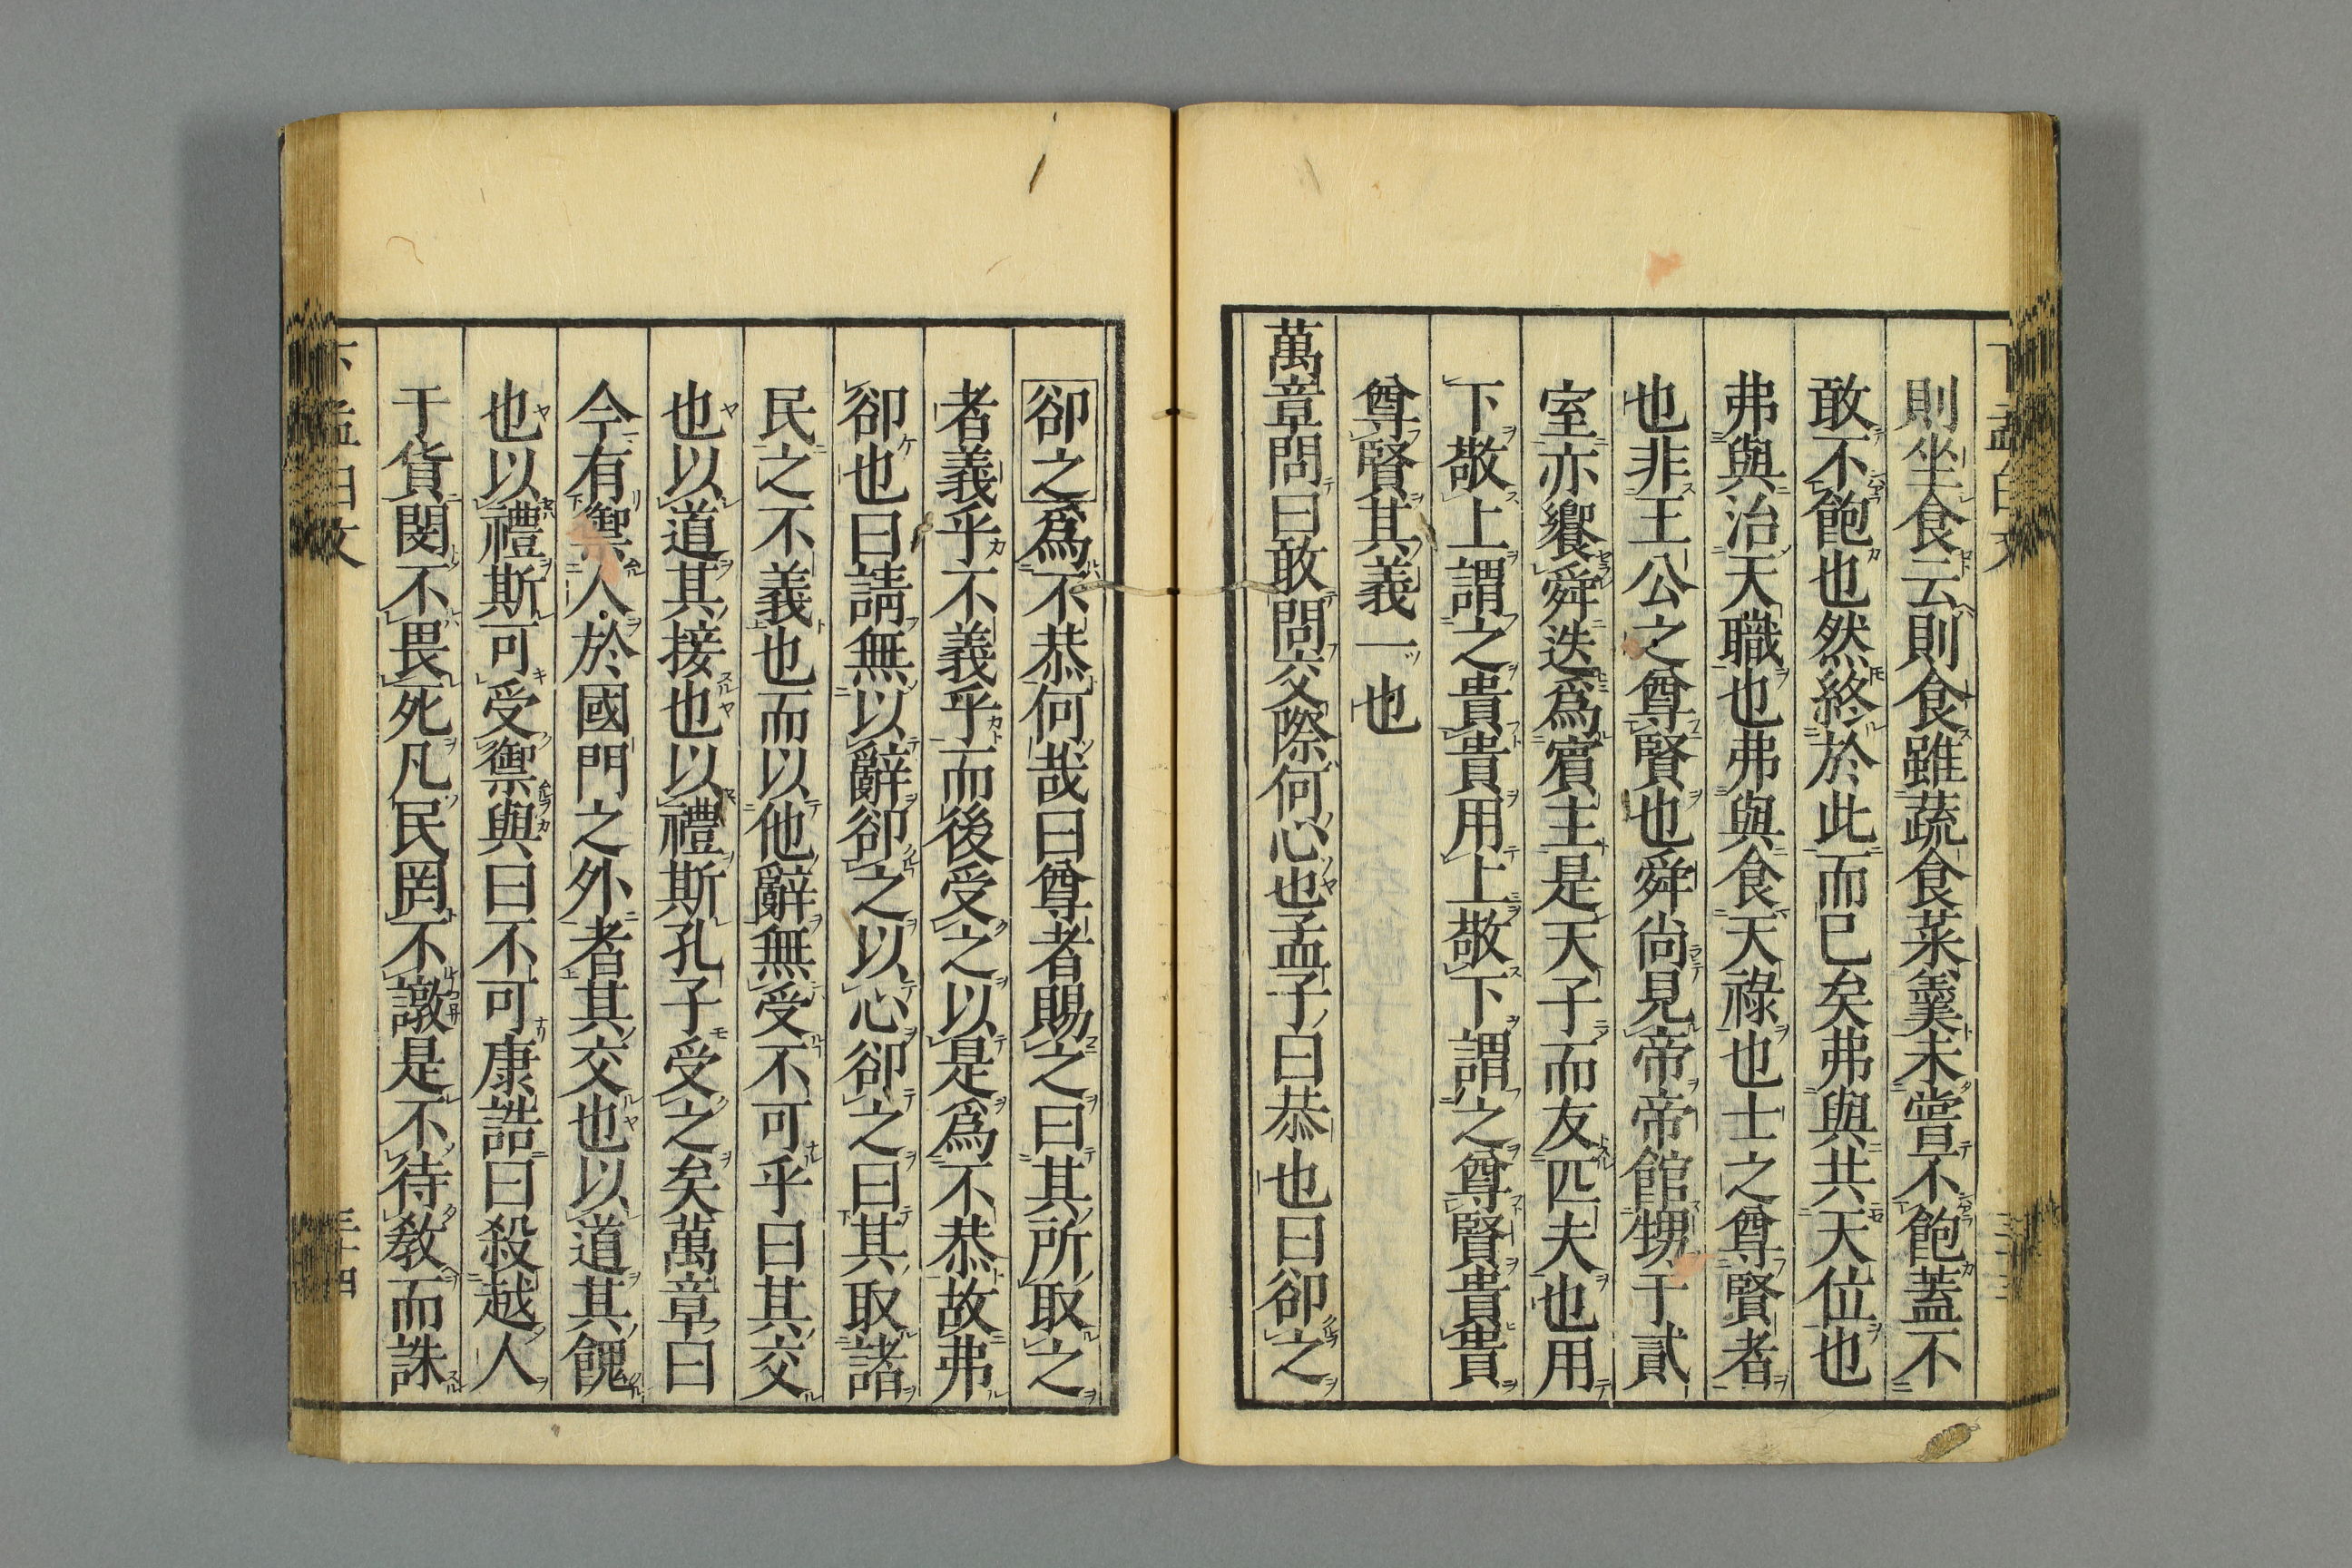 則坐食云則食雖蔬食菜羹未嘗不飽蓋不
敢不飽也然終於此而已矣弗與共天位也
弗與治天職也弗與食天祿也士之尊賢者
也非王公之尊賢也舜尙見帝帝館甥于貳
室亦饗舜迭爲賓主是天子而友匹夫也用
下敬上謂之貴貴用上敬下謂之尊賢貴貴
尊賢其義一也
萬章問曰敢問交際何心也孟子曰恭也曰卻之
卻之爲不恭何哉曰尊者賜之曰其所取之
者義乎不義乎而後受之以是爲不恭故弗
卻也曰請無以辭卻之以心卻之曰其取諸
民之不義也而以他辭無受不可乎曰其交
也以道其接也以禮斯孔子受之矣萬章曰
今有禦人於國門之外者其交也以道其餽
也以禮斯可受禦與曰不可康誥曰殺越人
于貨閔不畏死凡民罔不譈是不待敎而誅
下孟白文
三十四